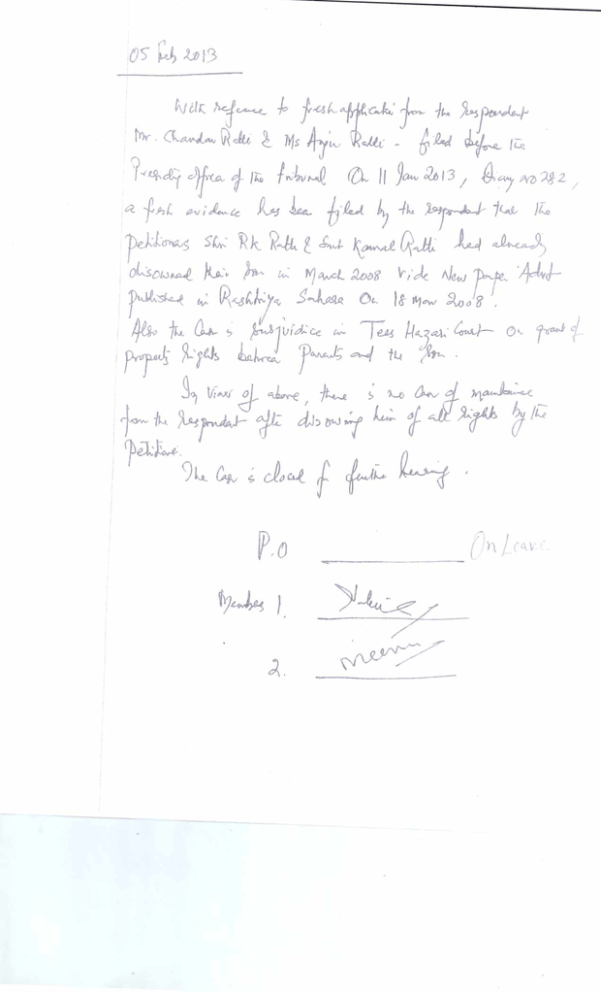 05 Feb 2013
With refrence to fresh application from the respondent
Mr. Chandan Ratti & Ms Anju Ratti - filed before the
Presiding officer of the Tribunal On 11 Jan 2013, Diary no 282,
a fresh evidence has been filed by the respondent that the
Petitioners Shri RK Ratti & Smt Kamal Ratti had already
disowned their Son in March 2008 vide New paper Advt
published in Rashtriya Sahara On 18 Mar 2008.
Also the Case is Subjudice in Tees Hazari Court on grant of
property Rights between Parents and the Son.
In view of above, there is no Case of maintaince
from the Respondent after disowning him of all rights by the
Petitioner.
The Case is closed for further hearing.
P.O On Leave
Members 1.
2.